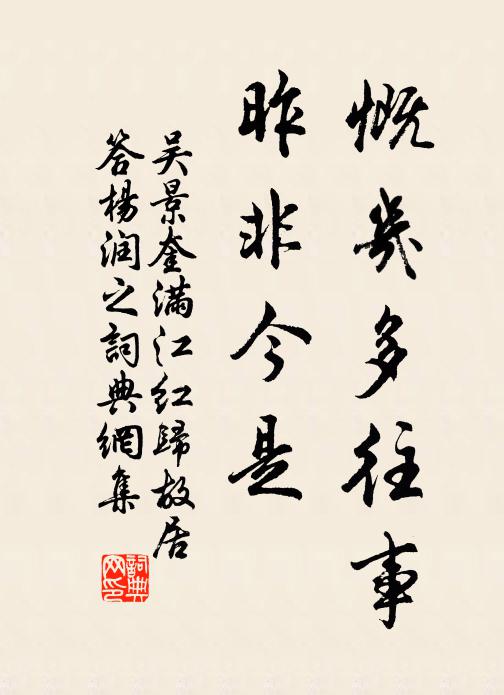 慨幾多往事
昨非今是
吴景奎满江红歸故居
答楊润之詞典網集
詞典网印